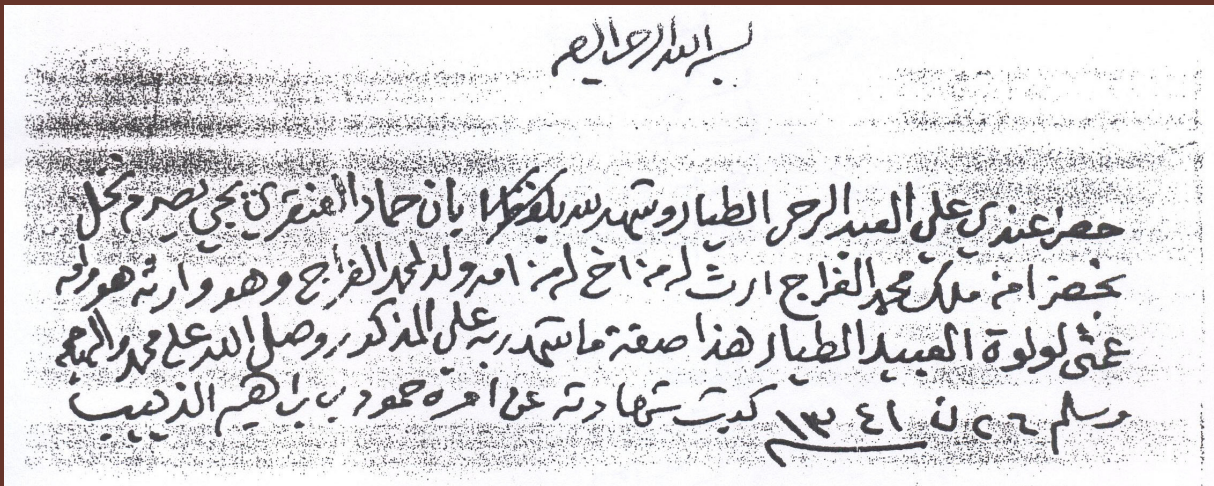 بسم الله الرحمن الرحيم
حضر عندي علي العبد الرحمن الطيار وشهد لله بان حماد الفنقري يجي يصرم نخل
بخضرا من ملك محمد الفراج ارث له من اخ له من امه ولد لمحمد الفراج وهو وارثه هو وامه
عمتي لولوة العبيد الطيار هذا صفة ما شهد به علي المذكور وصل الله على محمد واله وصحبه
وسلم ٢٦ ن ١٣٤١ كتب شهادته عن امره حمود بن براهيم الذييب